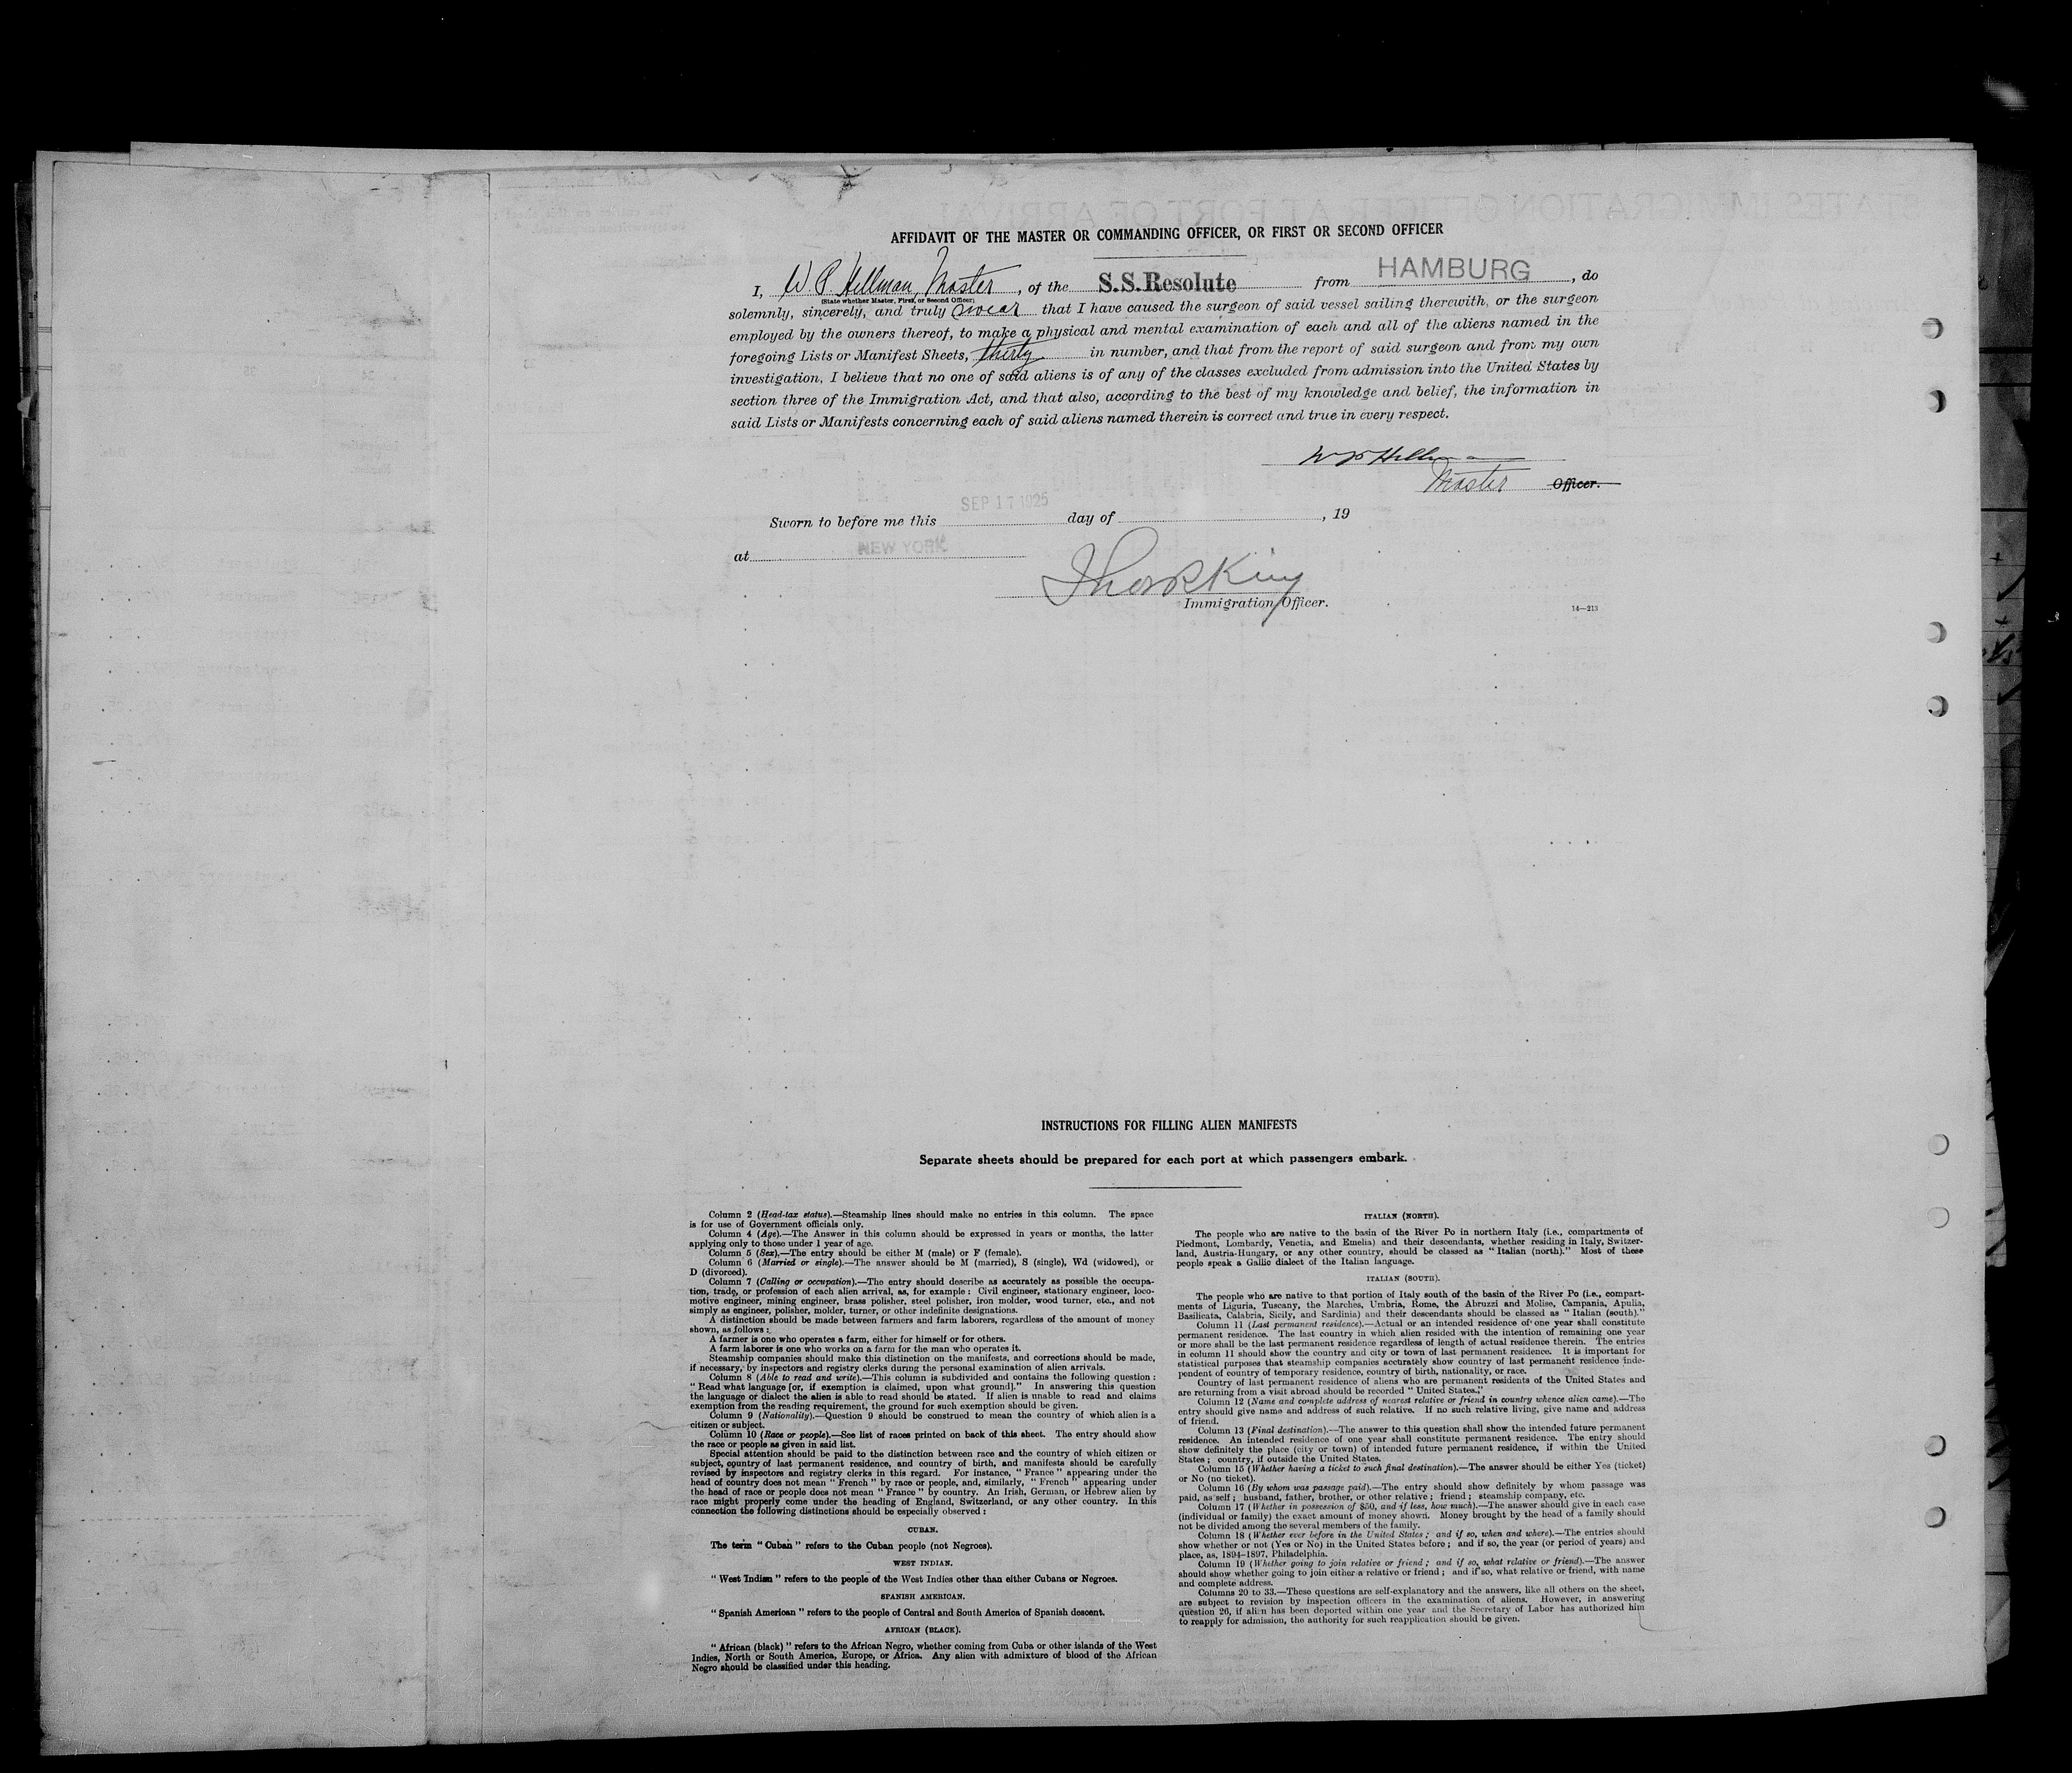 AFFIDAVIT OF THE MASTER OR COMMANDING OFFICER, OR FIRST OR SECOND OFFICER
I, W. P. Hellman, Master, of the S.S. Resolute from HAMBURG, do
(State whether Master, First, or Second Officer)
solemnly, sincerely, and truly swear that I have caused the surgeon of said vessel sailing therewith, or the surgeon
employed by the owners thereof, to make a physical and mental examination of each and all of the aliens named in the
foregoing Lists or Manifest Sheets, thirty in number, and that from the report of said surgeon and from my own
investigation, I believe that no one of said aliens is of any of the classes excluded from admission into the United States by
section three of the Immigration Act, and that also, according to the best of my knowledge and belief, the information in
said Lists or Manifests concerning each of said aliens named therein is correct and true in every respect.
Hellman
Master Officer.
Sworn to before me this SEP 17 1925 day of , 19
at NEW YORK
King
Immigration Officer.
14—213
INSTRUCTIONS FOR FILLING ALIEN MANIFESTS
Separate sheets should be prepared for each port at which passengers embark.
Column 2 (Head-tax status).—Steamship lines should make no entries in this column. The space
is for use of Government officials only.
Column 4 (Age).—The Answer in this column should be expressed in years or months, the latter
applying only to those under 1 year of age.
Column 5 (Sex),—The entry should be either M (male) or F (female).
Column 6 (Married or single).—The answer should be M (married), S (single), Wd (widowed), or
D (divorced).
Column 7 (Calling or occupation).—The entry should describe as accurately as possible the occupa-
tion, trade, or profession of each alien arrival, as, for example: Civil engineer, stationary engineer, loco-
motive engineer, mining engineer, brass polisher, steel polisher, iron molder, wood turner, etc., and not
simply as engineer, polisher, molder, turner, or other indefinite designations.
A distinction should be made between farmers and farm laborers, regardless of the amount of money
shown, as follows:
A farmer is one who operates a farm, either for himself or for others.
A farm laborer is one who works on a farm for the man who operates it.
Steamship companies should make this distinction on the manifests, and corrections should be made,
if necessary, by inspectors and registry clerks during the personal examination of alien arrivals.
Column 8 (Able to read and write).—This column is subdivided and contains the following question:
"Read what language [or, if exemption is claimed, upon what ground]." In answering this question
the language or dialect the alien is able to read should be stated. If alien is unable to read and claims
exemption from the reading requirement, the ground for such exemption should be given.
Column 9 (Nationality).—Question 9 should be construed to mean the country of which alien is a
citizen or subject.
Column 10 (Race or people).—See list of races printed on back of this sheet. The entry should show
the race or people as given in said list.
Special attention should be paid to the distinction between race and the country of which citizen or
subject, country of last permanent residence, and country of birth, and manifests should be carefully
revised by inspectors and registry clerks in this regard. For instance, "France" appearing under the
head of country does not mean "French" by race or people, and, similarly, "French" appearing under
the head of race or people does not mean "France" by country. An Irish, German, or Hebrew alien by
race might properly come under the heading of England, Switzerland, or any other country. In this
connection the following distinctions should be especially observed:
CUBAN.
The term "Cuban" refers to the Cuban people (not Negroes).
WEST INDIAN.
"West Indian" refers to the people of the West Indies other than either Cubans or Negroes.
SPANISH AMERICAN.
"Spanish American" refers to the people of Central and South America of Spanish descent.
AFRICAN (BLACK).
"African (black)" refers to the African Negro, whether coming from Cuba or other islands of the West
Indies, North or South America, Europe, or Africa. Any alien with admixture of blood of the African
Negro should be classified under this heading.
ITALIAN (NORTH).
The people who are native to the basin of the River Po in northern Italy (i.e., compartments of
Piedmont, Lombardy, Venetia, and Emelia) and their descendants, whether residing in Italy, Switzer-
land, Austria-Hungary, or any other country, should be classed as "Italian (north)." Most of these
people speak a Gallic dialect of the Italian language.
ITALIAN (SOUTH).
The people who are native to that portion of Italy south of the basin of the River Po (i.e., compart-
ments of Liguria, Tuscany, the Marches, Umbria, Rome, the Abruzzi and Molise, Campania, Apulia,
Basilicata, Calabria, Sicily, and Sardinia) and their descendants should be classed as "Italian (south)."
Column 11 (Last permanent residence).—Actual or an intended residence of one year shall constitute
permanent residence. The last country in which alien resided with the intention of remaining one year
or more shall be the last permanent residence regardless of length of actual residence therein. The entries
in column 11 should show the country and city or town of last permanent residence. It is important for
statistical purposes that steamship companies accurately show country of last permanent residence inde-
pendent of country of temporary residence, country of birth, nationality, or race.
Country of last permanent residence of aliens who are permanent residents of the United States and
are returning from a visit abroad should be recorded "United States."
Column 12 (Name and complete address of nearest relative or friend in country whence alien came).—The
entry should give name and address of such relative. If no such relative living, give name and address
of friend.
Column 13 (Final destination).—The answer to this question shall show the intended future permanent
residence. An intended residence of one year shall constitute permanent residence. The entry should
show definitely the place (city or town) of intended future permanent residence, if within the United
States; country, if outside the United States.
Column 15 (Whether having a ticket to such final destination).—The answer should be either Yes (ticket)
or No (no ticket).
Column 16 (By whom was passage paid).—The entry should show definitely by whom passage was
paid, as self; husband, father, brother, or other relative; friend; steamship company, etc.
Column 17 (Whether in possession of $50, and if less, how much).—The answer should give in each case
(individual or family) the exact amount of money shown. Money brought by the head of a family should
not be divided among the several members of the family.
Column 18 (Whether ever before in the United States; and if so, when and where).—The entries should
show whether or not (Yes or No) in the United States before; and if so, the year (or period of years) and
place, as, 1894-1897, Philadelphia.
Column 19 (Whether going to join relative or friend; and if so, what relative or friend).—The answer
should show whether going to join either a relative or friend; and if so, what relative or friend, with name
and complete address.
Columns 20 to 33.—These questions are self-explanatory and the answers, like all others on the sheet,
are subject to revision by inspection officers in the examination of aliens. However, in answering
question 26, if alien has been deported within one year and the Secretary of Labor has authorized him
to reapply for admission, the authority for such reapplication should be given.